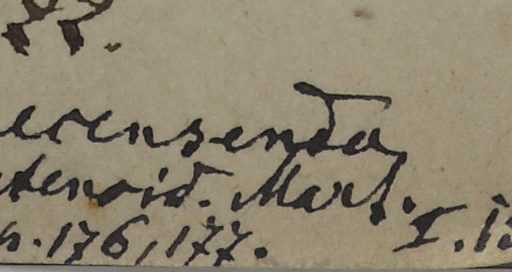 ecensenda
tenoid. Mart.
n. 176, 177. I. 1